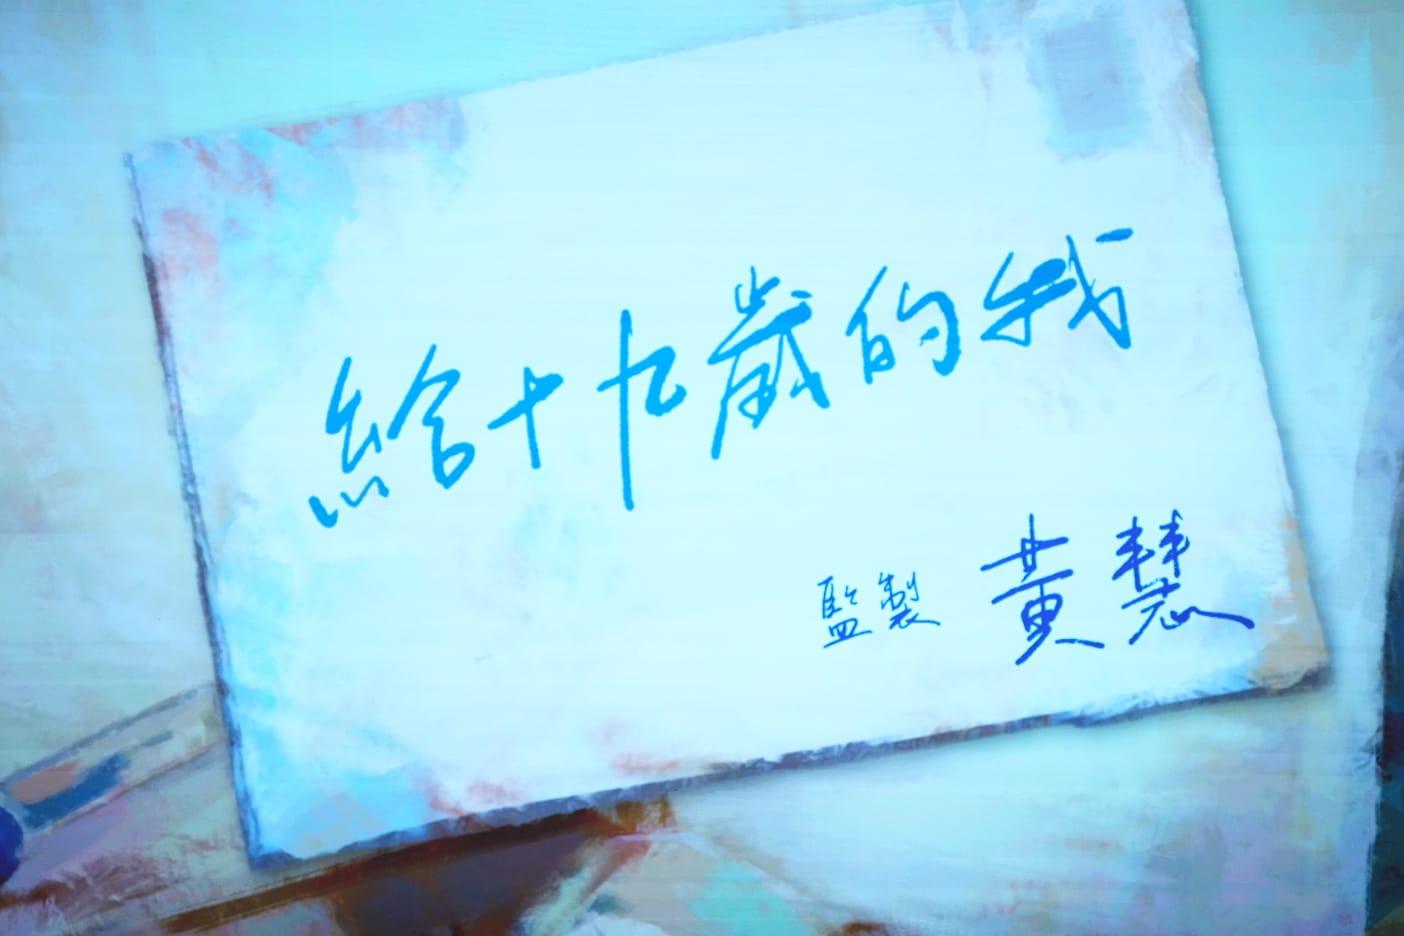 給十九歲的我
監製 黃慧